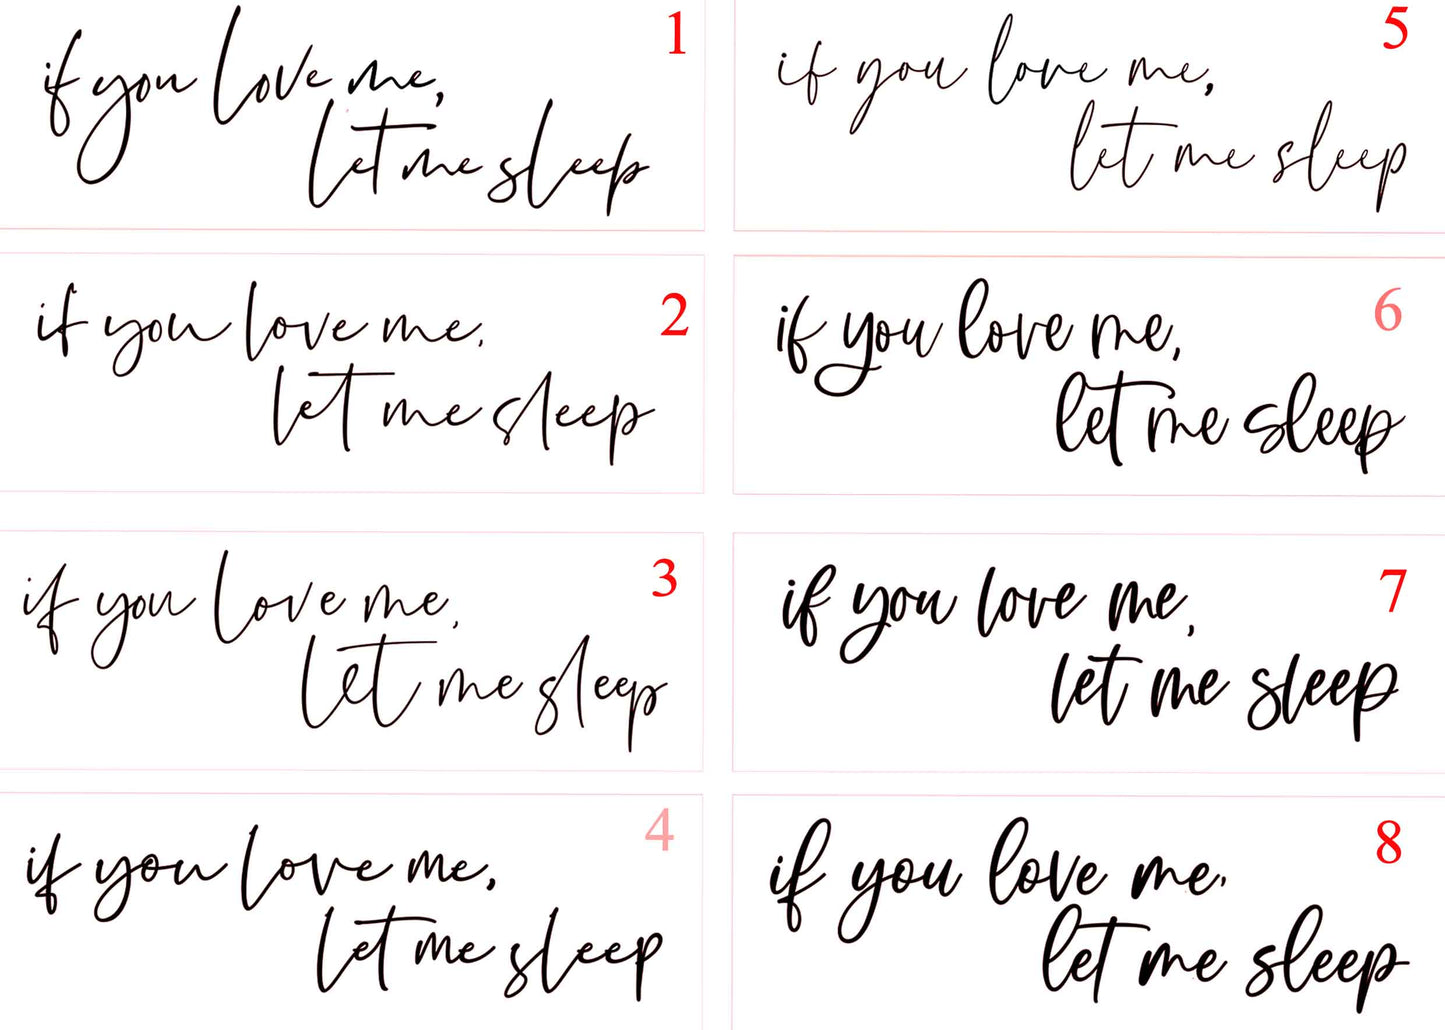 1
if you love me,
let me sleep
2
if you love me,
let me sleep
3
if you love me,
let me sleep
4
if you love me,
let me sleep
5
if you love me,
let me sleep
6
if you love me,
let me sleep
7
if you love me,
let me sleep
8
if you love me,
let me sleep